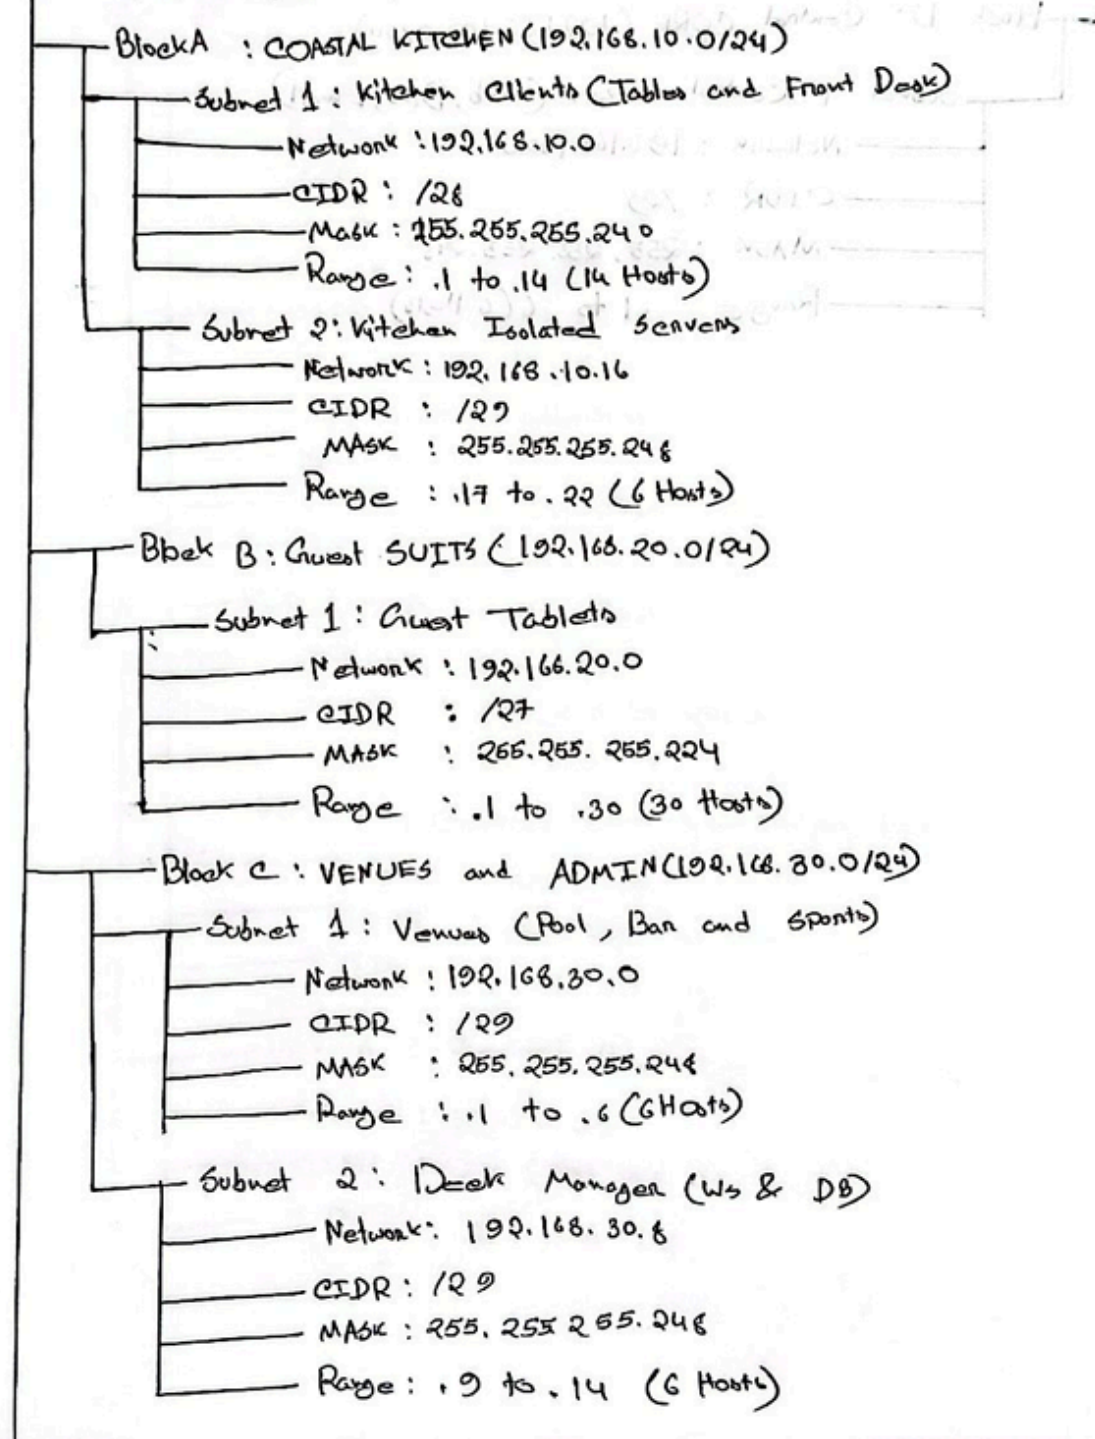 Block A : COASTAL KITCHEN (192.168.10.0/24)
Subnet 1 : Kitchen Clients (Tables and Front Desk)
Network : 192.168.10.0
CIDR : /28
Mask : 255.255.255.240
Range : .1 to .14 (14 Hosts)
Subnet 2 : Kitchen Isolated Servers
Network : 192.168.10.16
CIDR : /29
MASK : 255.255.255.248
Range : .17 to .22 (6 Hosts)
Block B : Guest SUITS (192.168.20.0/24)
Subnet 1 : Guest Tablets
Network : 192.168.20.0
CIDR : /27
MASK : 255.255.255.224
Range : .1 to .30 (30 Hosts)
Block C : VENUES and ADMIN (192.168.30.0/24)
Subnet 1 : Venues (Pool, Bar and Sports)
Network : 192.168.30.0
CIDR : /29
MASK : 255.255.255.248
Range : .1 to .6 (6 Hosts)
Subnet 2 : Deck Manager (Ws & DB)
Network : 192.168.30.8
CIDR : /29
MASK : 255.255 255.248
Range : .9 to .14 (6 Hosts)